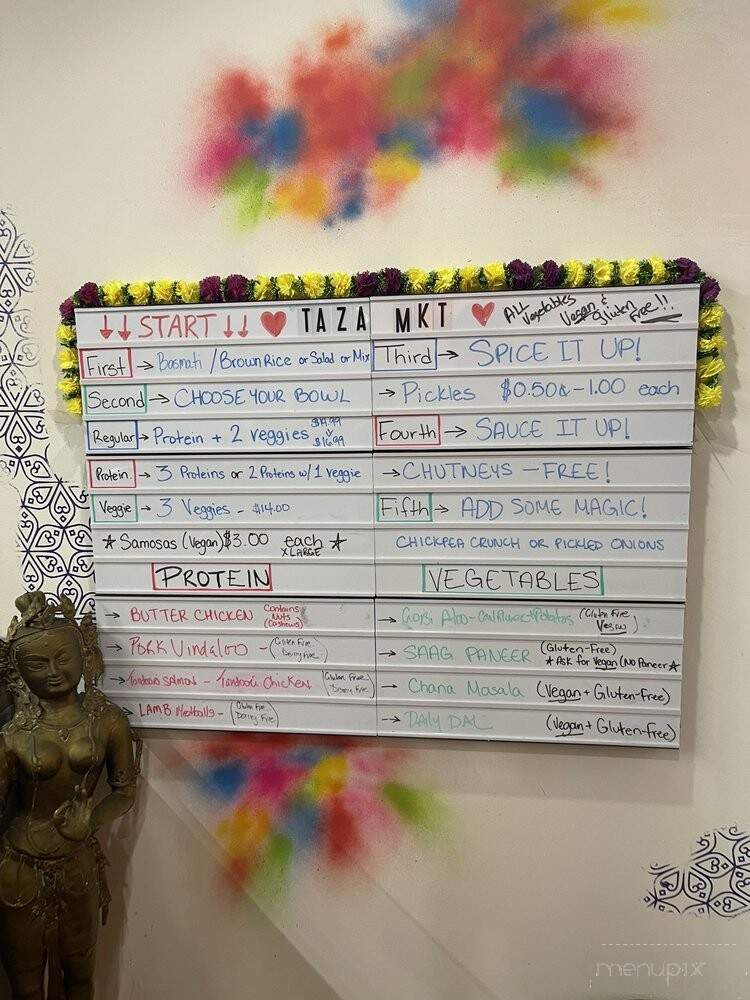 ↓↓ START ↓↓ ♥ TAZA MKT ♥ ALL Vegetables Vegan & Gluten Free!!
First → Basmati / Brown Rice or Salad or Mix
Second → CHOOSE YOUR BOWL
Regular → Protein + 2 veggies $14.99 $16.99
Protein → 3 Proteins or 2 Proteins w/ 1 veggie
Veggie → 3 Veggies - $14.00
★ Samosas (Vegan) $3.00 each ★
XLARGE
PROTEIN
→ BUTTER CHICKEN (Contains Nuts (Cashews))
→ Pork Vindaloo - (Gluten Free Dairy Free)
→ Tandoori SALMON - Tandoori Chicken (Gluten Free Dairy Free)
→ LAMB Meatballs - (Gluten Free Dairy Free)
Third → SPICE IT UP!
→ Pickles $0.50¢ - 1.00 each
Fourth → SAUCE IT UP!
→ CHUTNEYS - FREE!
Fifth → ADD SOME MAGIC!
CHICKPEA CRUNCH OR PICKLED ONIONS
VEGETABLES
→ Gobi Aloo - Cauliflower + Potatoes (Gluten Free Vegan)
→ SAAG PANEER (Gluten-Free)
★ Ask for Vegan (No Paneer ★
→ Chana Masala (Vegan + Gluten-free)
→ DAILY DAL (Vegan + Gluten-free)
menupix